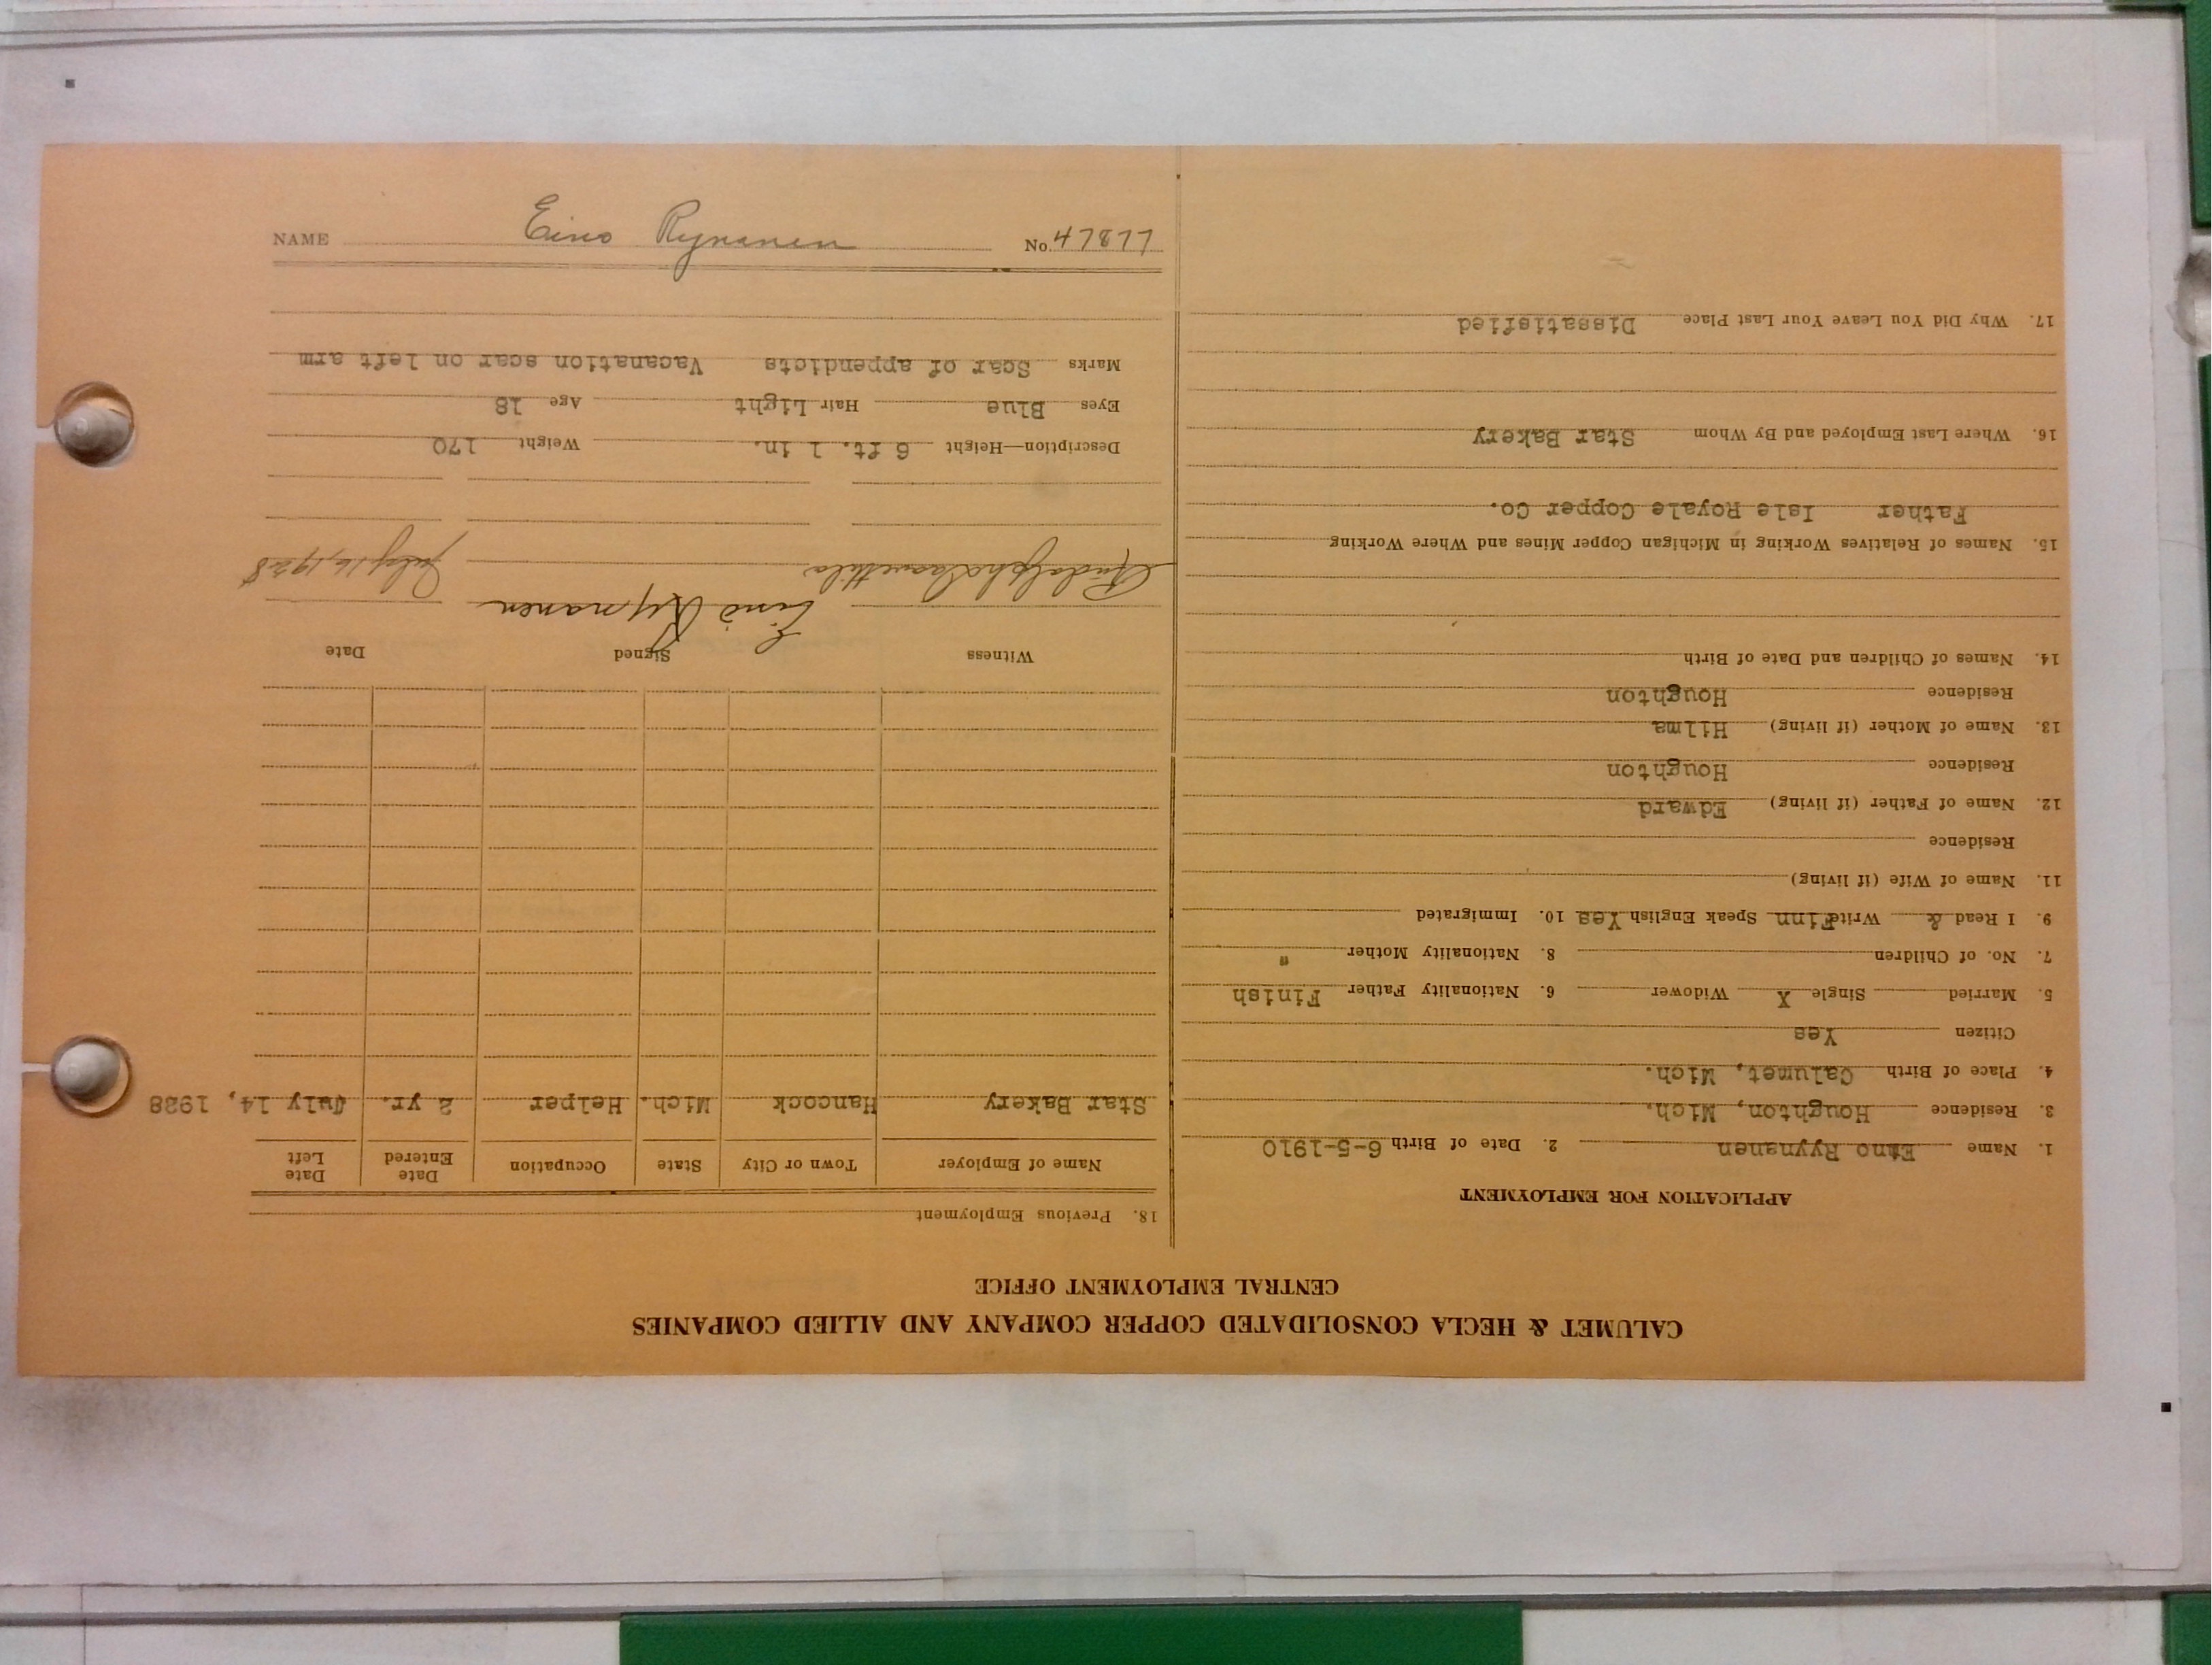 NAME Eino Rynanen No. 47877
CALUMET & HECLA CONSOLIDATED COPPER COMPANY AND ALLIED COMPANIES
CENTRAL EMPLOYMENT OFFICE
APPLICATION FOR EMPLOYMENT
1. Name Eino Ryynanen 2. Date of Birth 6-5-1910
3. Residence Houghton, Mich.
4. Place of Birth Calumet, Mich.
Citizen Yes
5. Married Single X Widower 6. Nationality Father Finish
7. No. of Children 8. Nationality Mother "
9. I Read & Write Finn Speak English Yes 10. Immigrated
11. Name of Wife (if living)
Residence
12. Name of Father (if living) Edward
Residence Houghton
13. Name of Mother (if living) Hilma
Residence Houghton
14. Names of Children and Date of Birth
15. Names of Relatives Working in Michigan Copper Mines and Where Working
Father Isle Royale Copper Co.
16. Where Last Employed and By Whom Star Bakery
17. Why Did You Leave Your Last Place Dissatisfied
18. Previous Employment
Name of Employer Town or City State Occupation Date Entered Date Left
Star Bakery Hancock Mich. Helper 2 yr. July 14, 1928
Witness Signed Date
Rudolph Eino Rynanen July 16, 1928
Description—Height 6 ft. 1 in. Weight 170
Eyes Blue Hair Light Age 18
Marks Scar of appendicts Vacanation scar on left arm